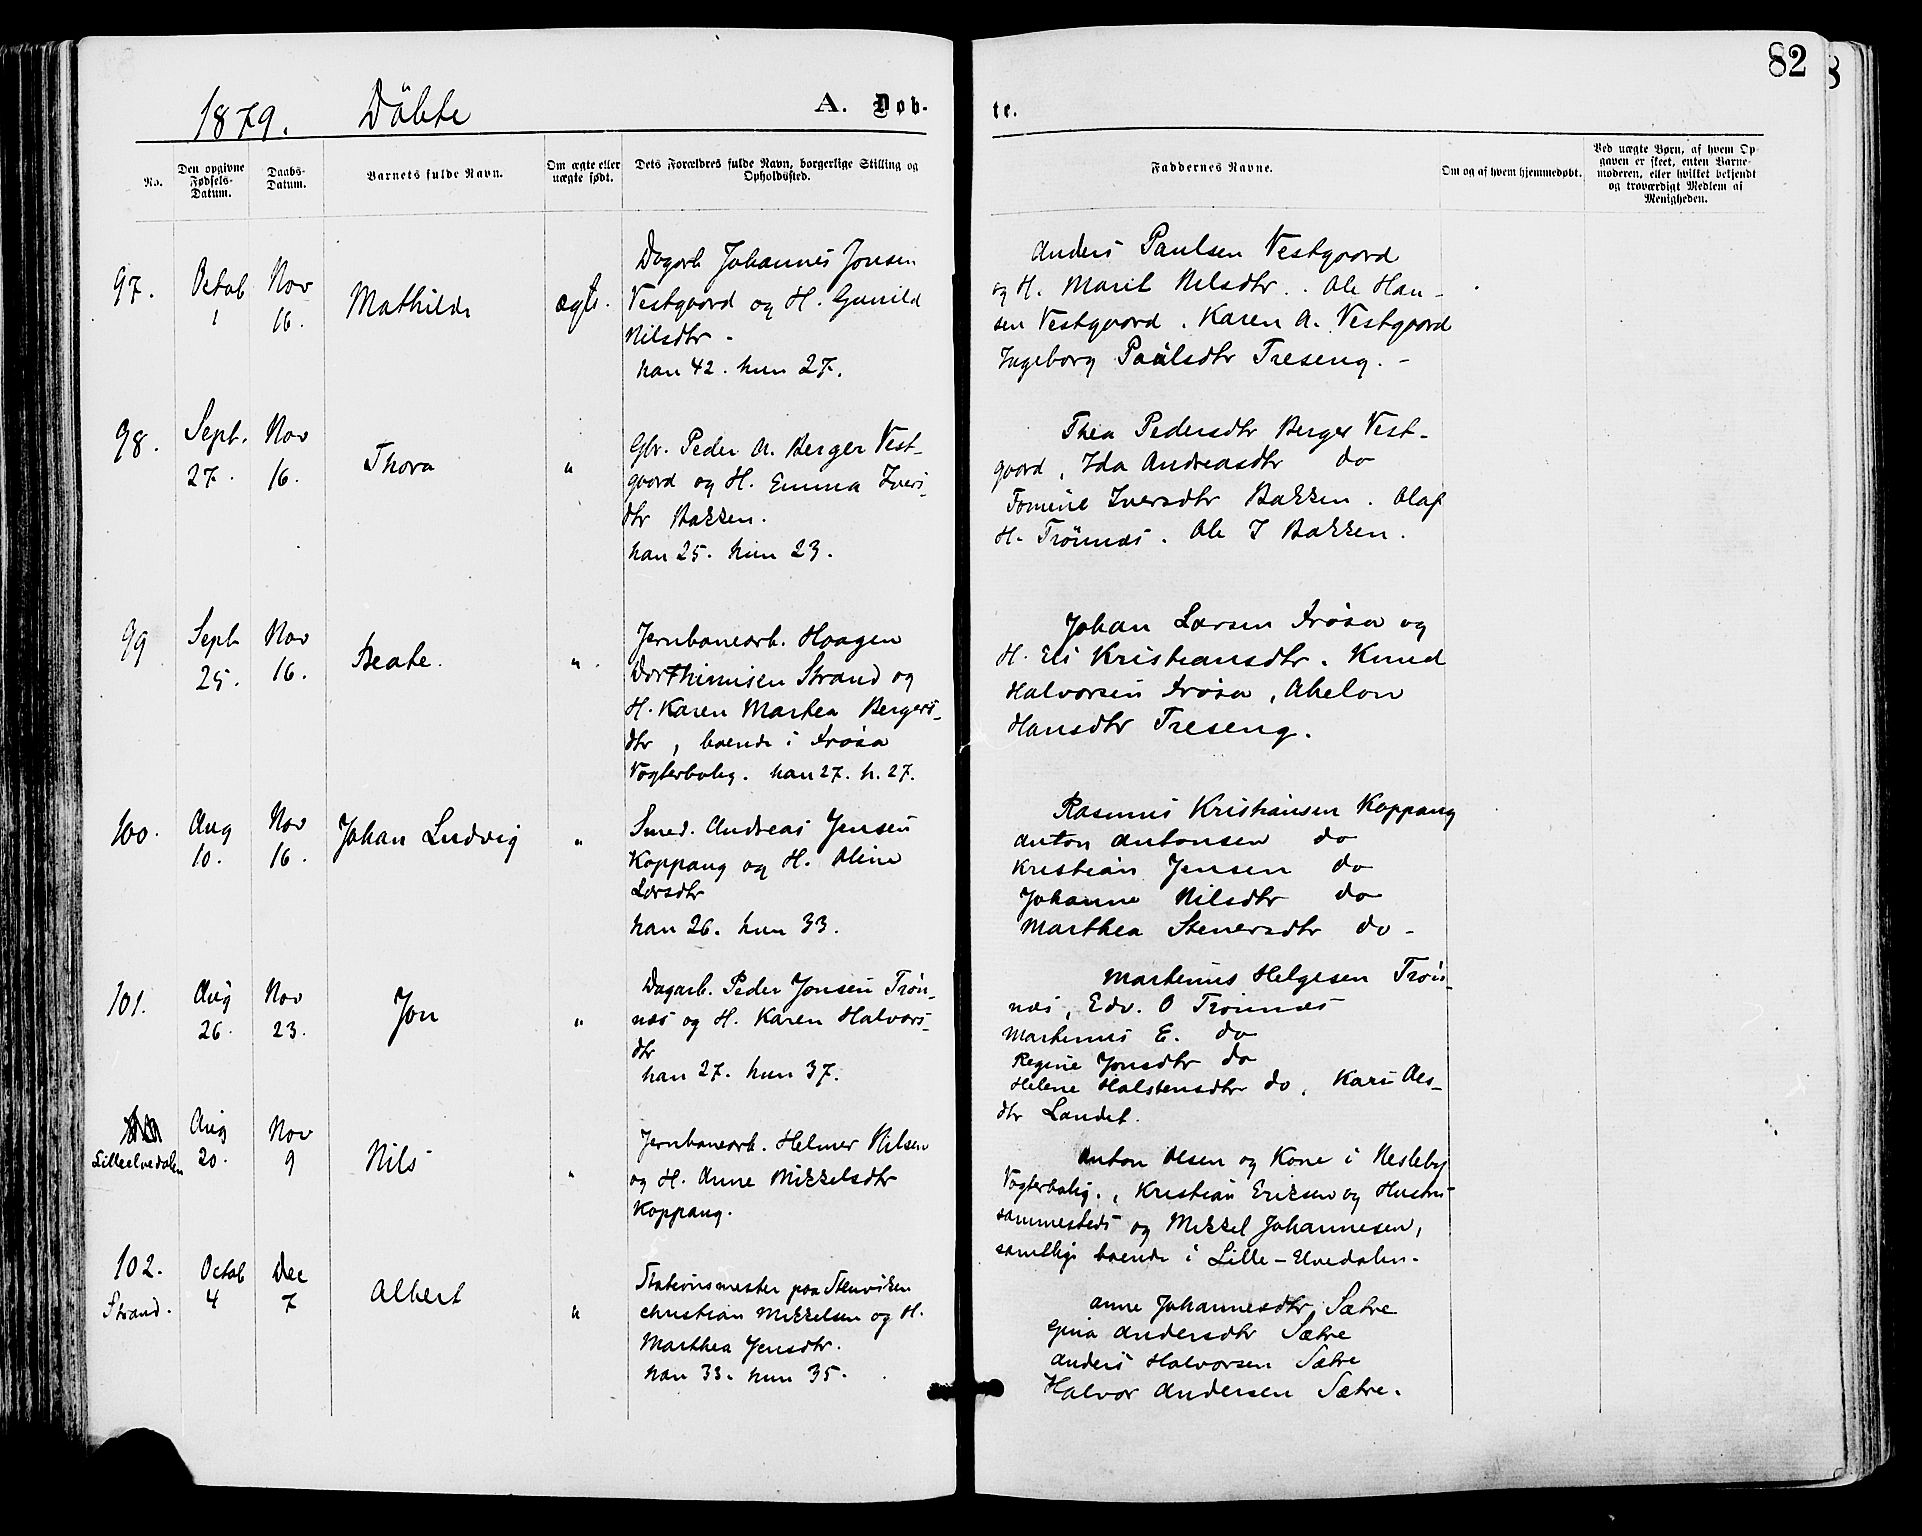 82
1879. Döbte A. Døb- te.
No.
Den opgivne Fødsels-Datum.
Daabs-Datum.
Barnets fulde Navn.
Om ægte eller uægte født.
Dets Forældres fulde Navn, borgerlige Stilling og Opholdssted.
Faddernes Navne.
Om og af hvem hjemmedøbt.
Ved uægte Børn, af hvem Op-
gaven er skeet, enten Barne-
moderen, eller hvilket bekjendt
og troværdigt Medlem af
Menigheden.
97.
Octob 1
Nov 16.
Mathilde
ægte.
Dagarb Johannes Jonsen
Vestgaard og H. Gunild
Nilsdtr -
han 42. hun 27.
Anders Paulsen Vestgaard
og H. Marit Nilsdtr. . Ole Han-
sen Vestgaard . Karen A. Vestgaard
Ingeborg Paulsdtr Treseng. -
98.
Sept. 27.
Nov 16.
Thora
"
Gbr. Peder A. Berger Vest-
gaard og H. Emma Ivers-
dtr Bakken.
han 25. hun 23.
Thea Pedersdtr Berger Vest-
gaard, Ida Andreasdtr do
Tomine Iversdtr Bakken. Olaf
H. Trönnæs. Ole I Bakken.
99
Sept 25.
Nov 16.
Beate.
"
Jernbanearb. Haagen
Dorthinusen Strand og
H. Karen Marthea Bergers-
dtr, boende i Trøsa
Vogterbolig. han 27. h. 27.
Johan Larsen Trøsa og
H. Eli Kristiansdtr. Knud
Halvorsen Trøsa, Abelon
Hansdtr Treseng.
100.
Aug 10.
Nov 16.
Johan Ludvig
"
Smed. Andreas Jensen
Koppang og H. Oline
Larsdtr
han 26. hun 33.
Rasmus Kristiansen Koppang
Anton Antonsen do
Kristian Jensen do
Johanne Nilsdtr do
Marthea Stenersdtr do -
101.
Aug 26.
Nov 23.
Jon
"
Dagarb. Peder Jonsen Trön-
næs og H. Karen Halvors-
dtr
han 27. hun 37.
Martinus Helgesen Trön-
næs, Edv. O Trönnæs
Martinus E. do
Regine Jonsdtr do
Helene Halstensdtr do, Kari Ols-
dtr Landet.
Lilleelvedalen
Aug 20.
Nov 9
Nils
"
Jernbanearb. Helmer Nilsen
og H. Anne Mikkelsdtr
Koppang.
Anton Olsen og Kone i Nesleby
Vogterbolig., Kristian Eriksen og Hustru
sammesteds og Mikkel Johannesen,
samtlige boende i Lille-Elvedalen.
102.
Strand.
Octob 4
Dec 7
Albert
"
Stationsmester paa Stenviken
Christian Mikkelsen og H.
Marthea Jensdtr.
han 33. hun 35.
Anne Johannesdtr Sætre
Gina Andersdtr Sætre
Anders Halvorsen Sætre
Halvor Andersen Sætre.